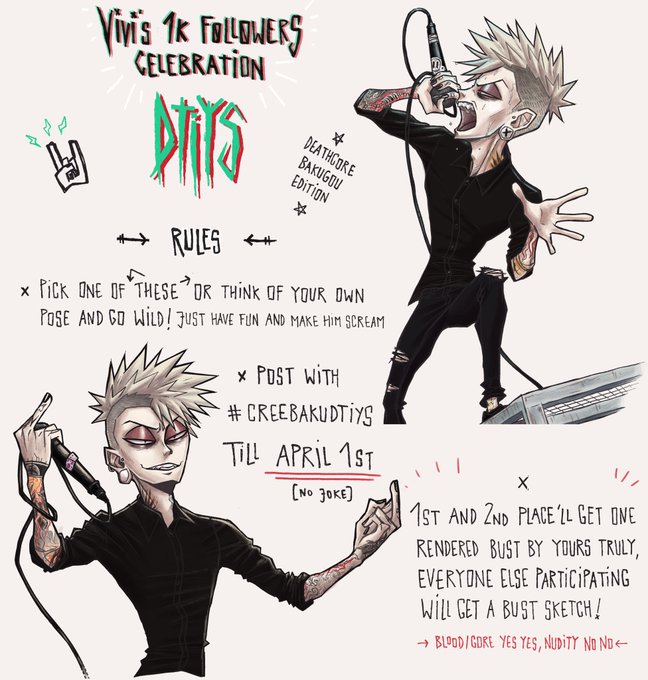 Vivi's 1K FOLLOWERS
CELEBRATION
DTIYS
DEATHCORE
BAKUGOU
EDITION
RULES
x PICK ONE OF THESE OR THINK OF YOUR OWN
POSE AND GO WILD! JUST HAVE FUN AND MAKE HIM SCREAM
x POST WITH
#CREEBAKUDTIYS
TILL APRIL 1ST
[NO JOKE]
x
1ST AND 2ND PLACE'LL GET ONE
RENDERED BUST BY YOURS TRULY,
EVERYONE ELSE PARTICIPATING
WILL GET A BUST SKETCH!
→ BLOOD/GORE YES YES, NUDITY NO NO ←